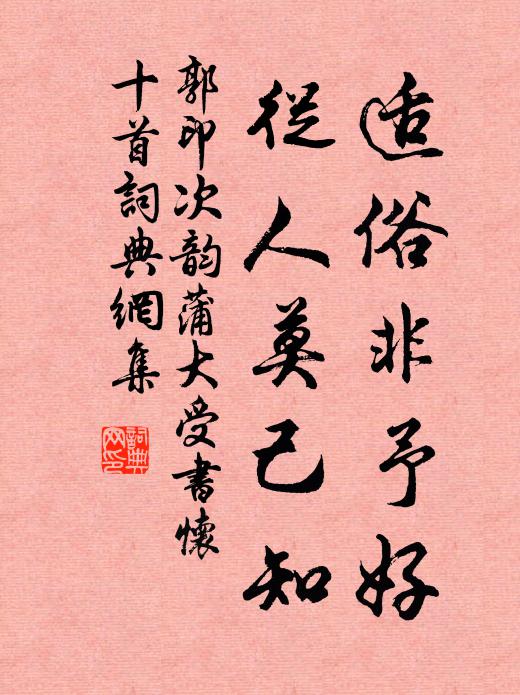 适俗非予好
從人莫己知
郭印次韵蒲大受書懷
十首詞典網集
詞典
网印